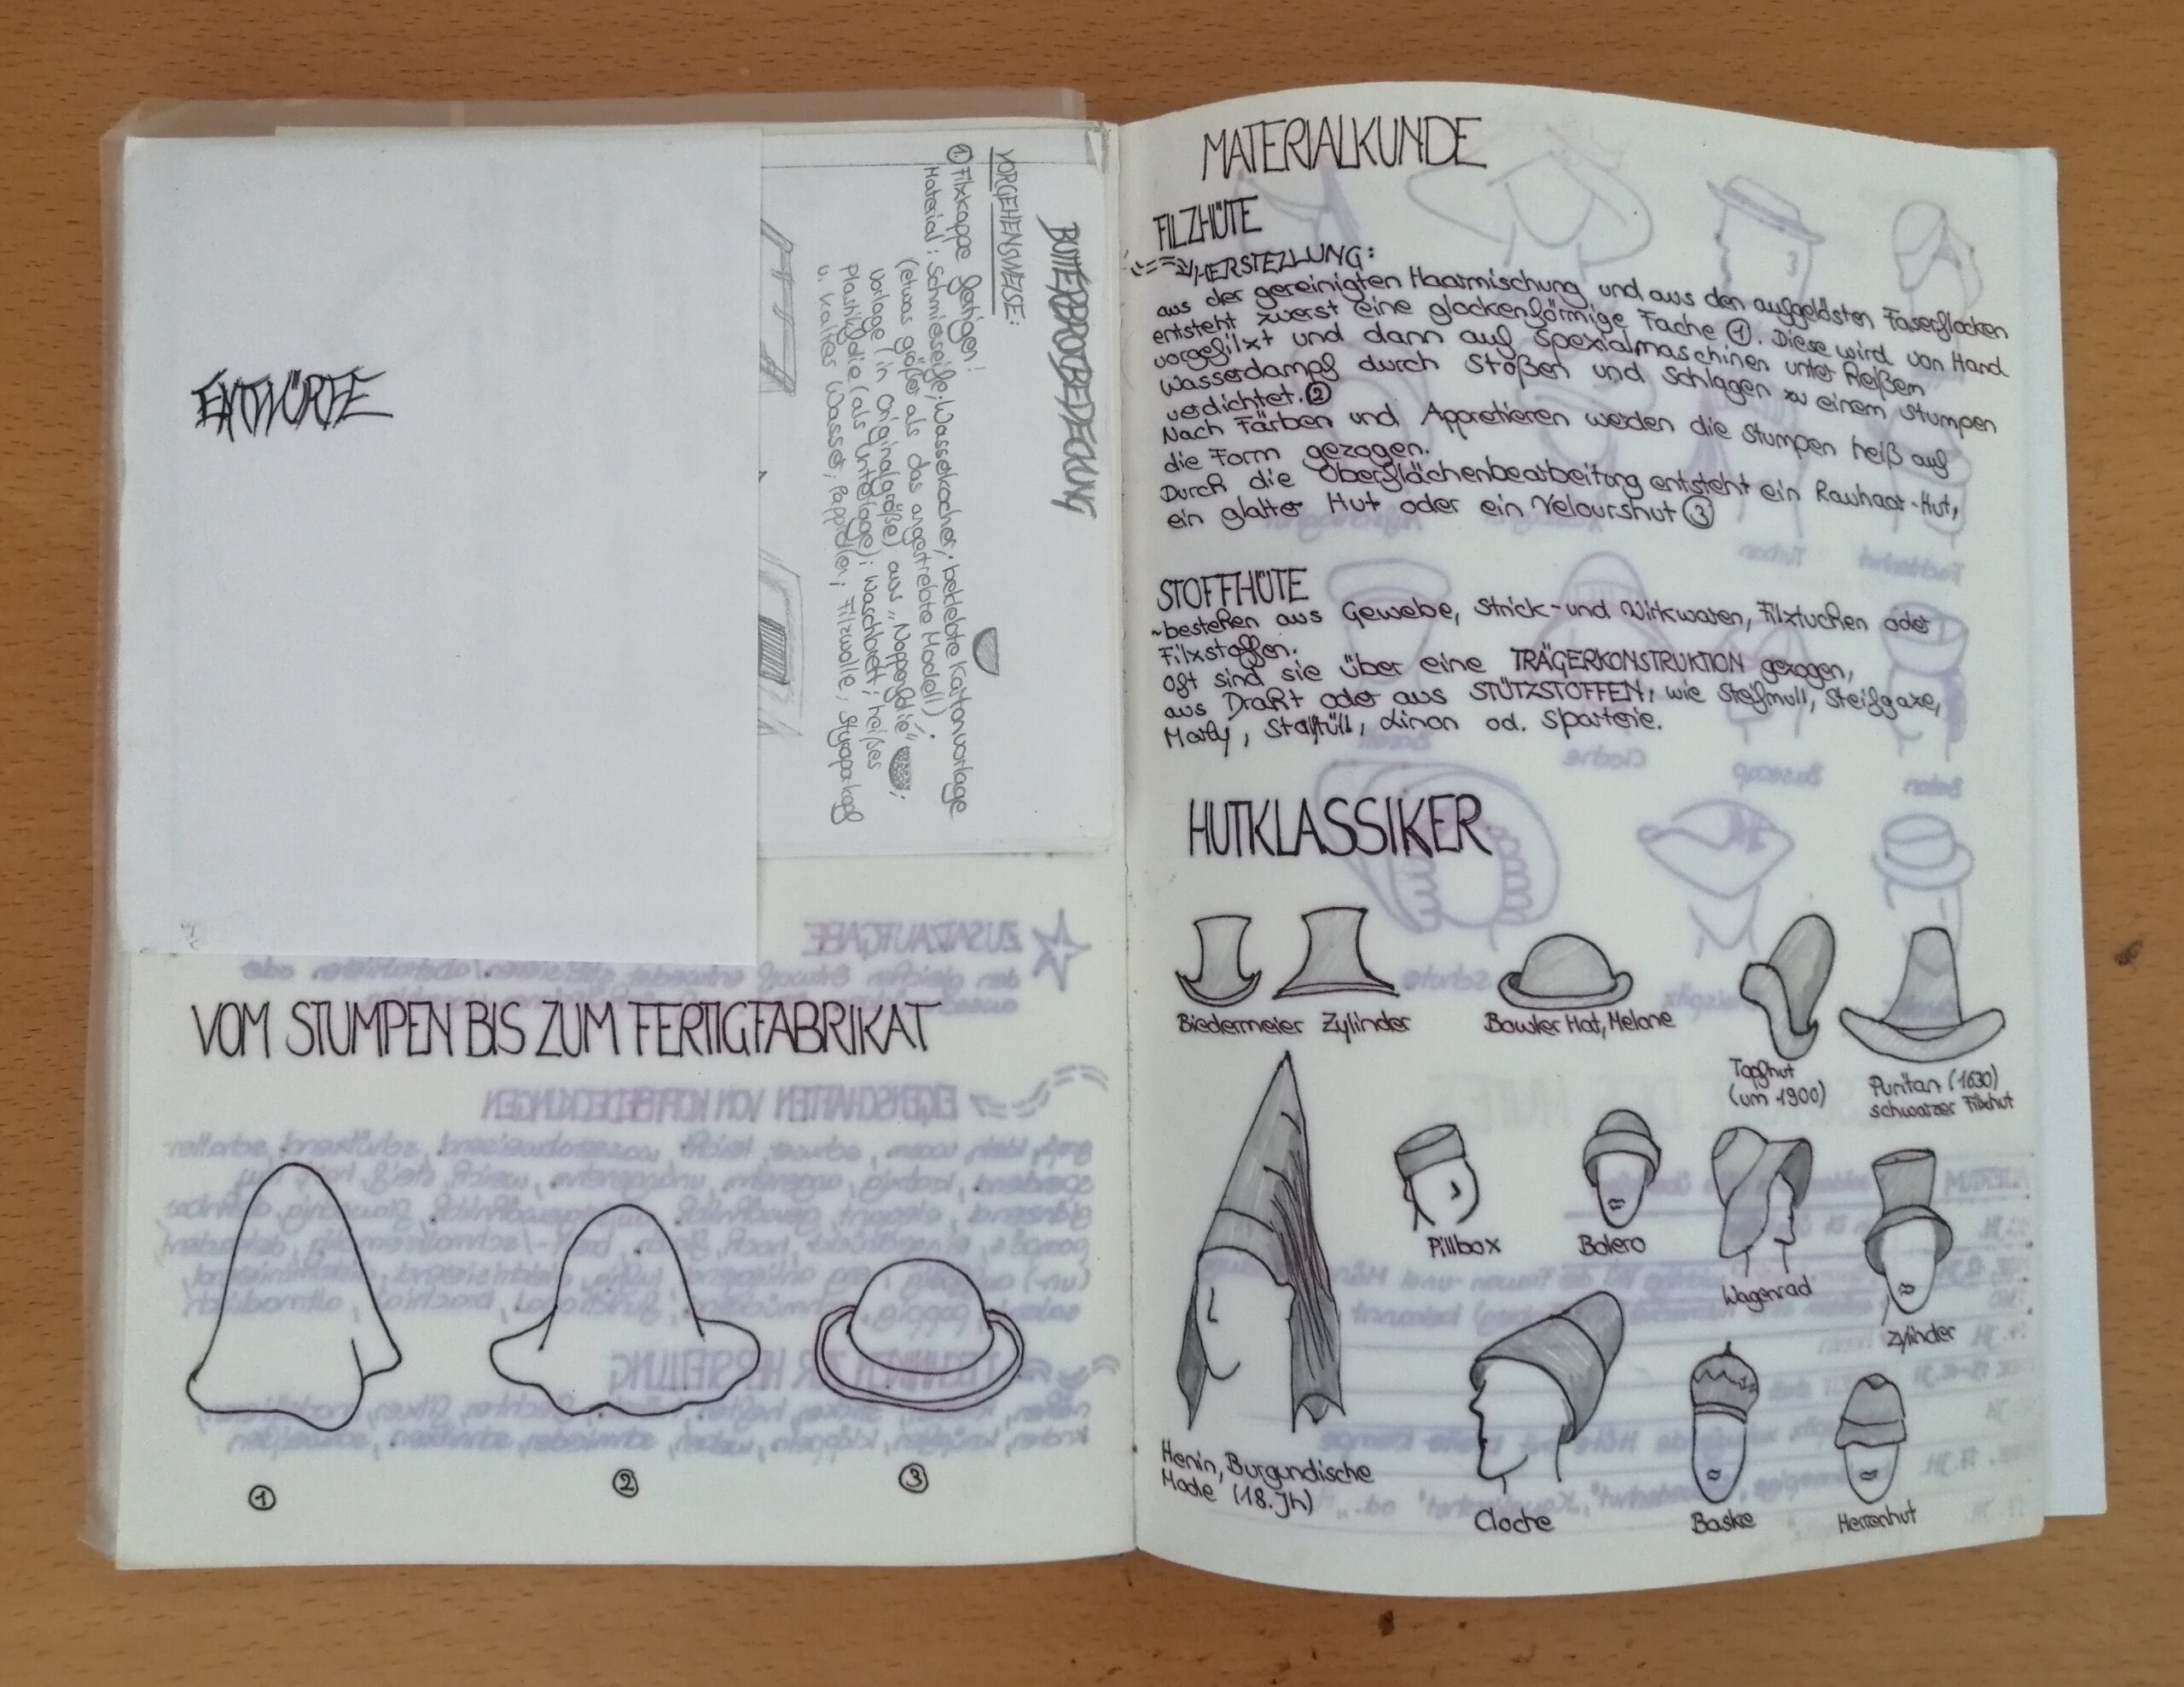 ENTWÜRFE
BUTTERBROTBEDECKUNG
VORGEHENSWEISE:
① Filzkappe fertigen!
Material: Schmierseife; Wasserkocher; beklebte Kartonvorlage
(etwas größer als das angestrebte Modell);
Vorlage (in Originalgröße) aus „Noppenfolie“;
Plastikfolie (als Unterlage); Waschbrett; heißes
u. kaltes Wasser; Filzwolle, Styroporkopf
VOM STUMPEN BIS ZUM FERTIGFABRIKAT
①
②
③
MATERIALKUNDE
FILZHÜTE
HERSTELLUNG:
aus der gereinigten Haarmischung und aus den aufgelösten Faserflocken
entsteht zuerst eine glockenförmige Fache ①. Diese wird von Hand
vorgefilzt und dann auf Spezialmaschinen unter heißem
Wasserdampf durch Stoßen und Schlagen zu einem Stumpen
verdichtet. ②
Nach Färben und Appretieren werden die Stumpen heiß auf
die Form gezogen.
Durch die Oberflächenbearbeitung entsteht ein Rauhaar-Hut,
ein glatter Hut oder ein Velourshut ③
STOFFHÜTE
~bestehen aus Gewebe, Strick- und Wirkwaren, Filztuchen oder
Filzstoffen.
Oft sind sie über eine TRÄGERKONSTRUKTION gezogen,
aus Draht oder aus STÜTZSTOFFEN, wie Steifmull, Steifgaze,
Marly, Steiftüll, Linon od. Sparterie.
HUTKLASSIKER
Biedermeier Zylinder
Bowler Hat, Melone
Topfhut
(um 1900)
Puritan (1630)
schwarzer Filzhut
Pillbox
Bolero
Wagenrad
Zylinder
Henin, Burgundische
Mode (18. Jh)
Cloche
Baske
Herrenhut